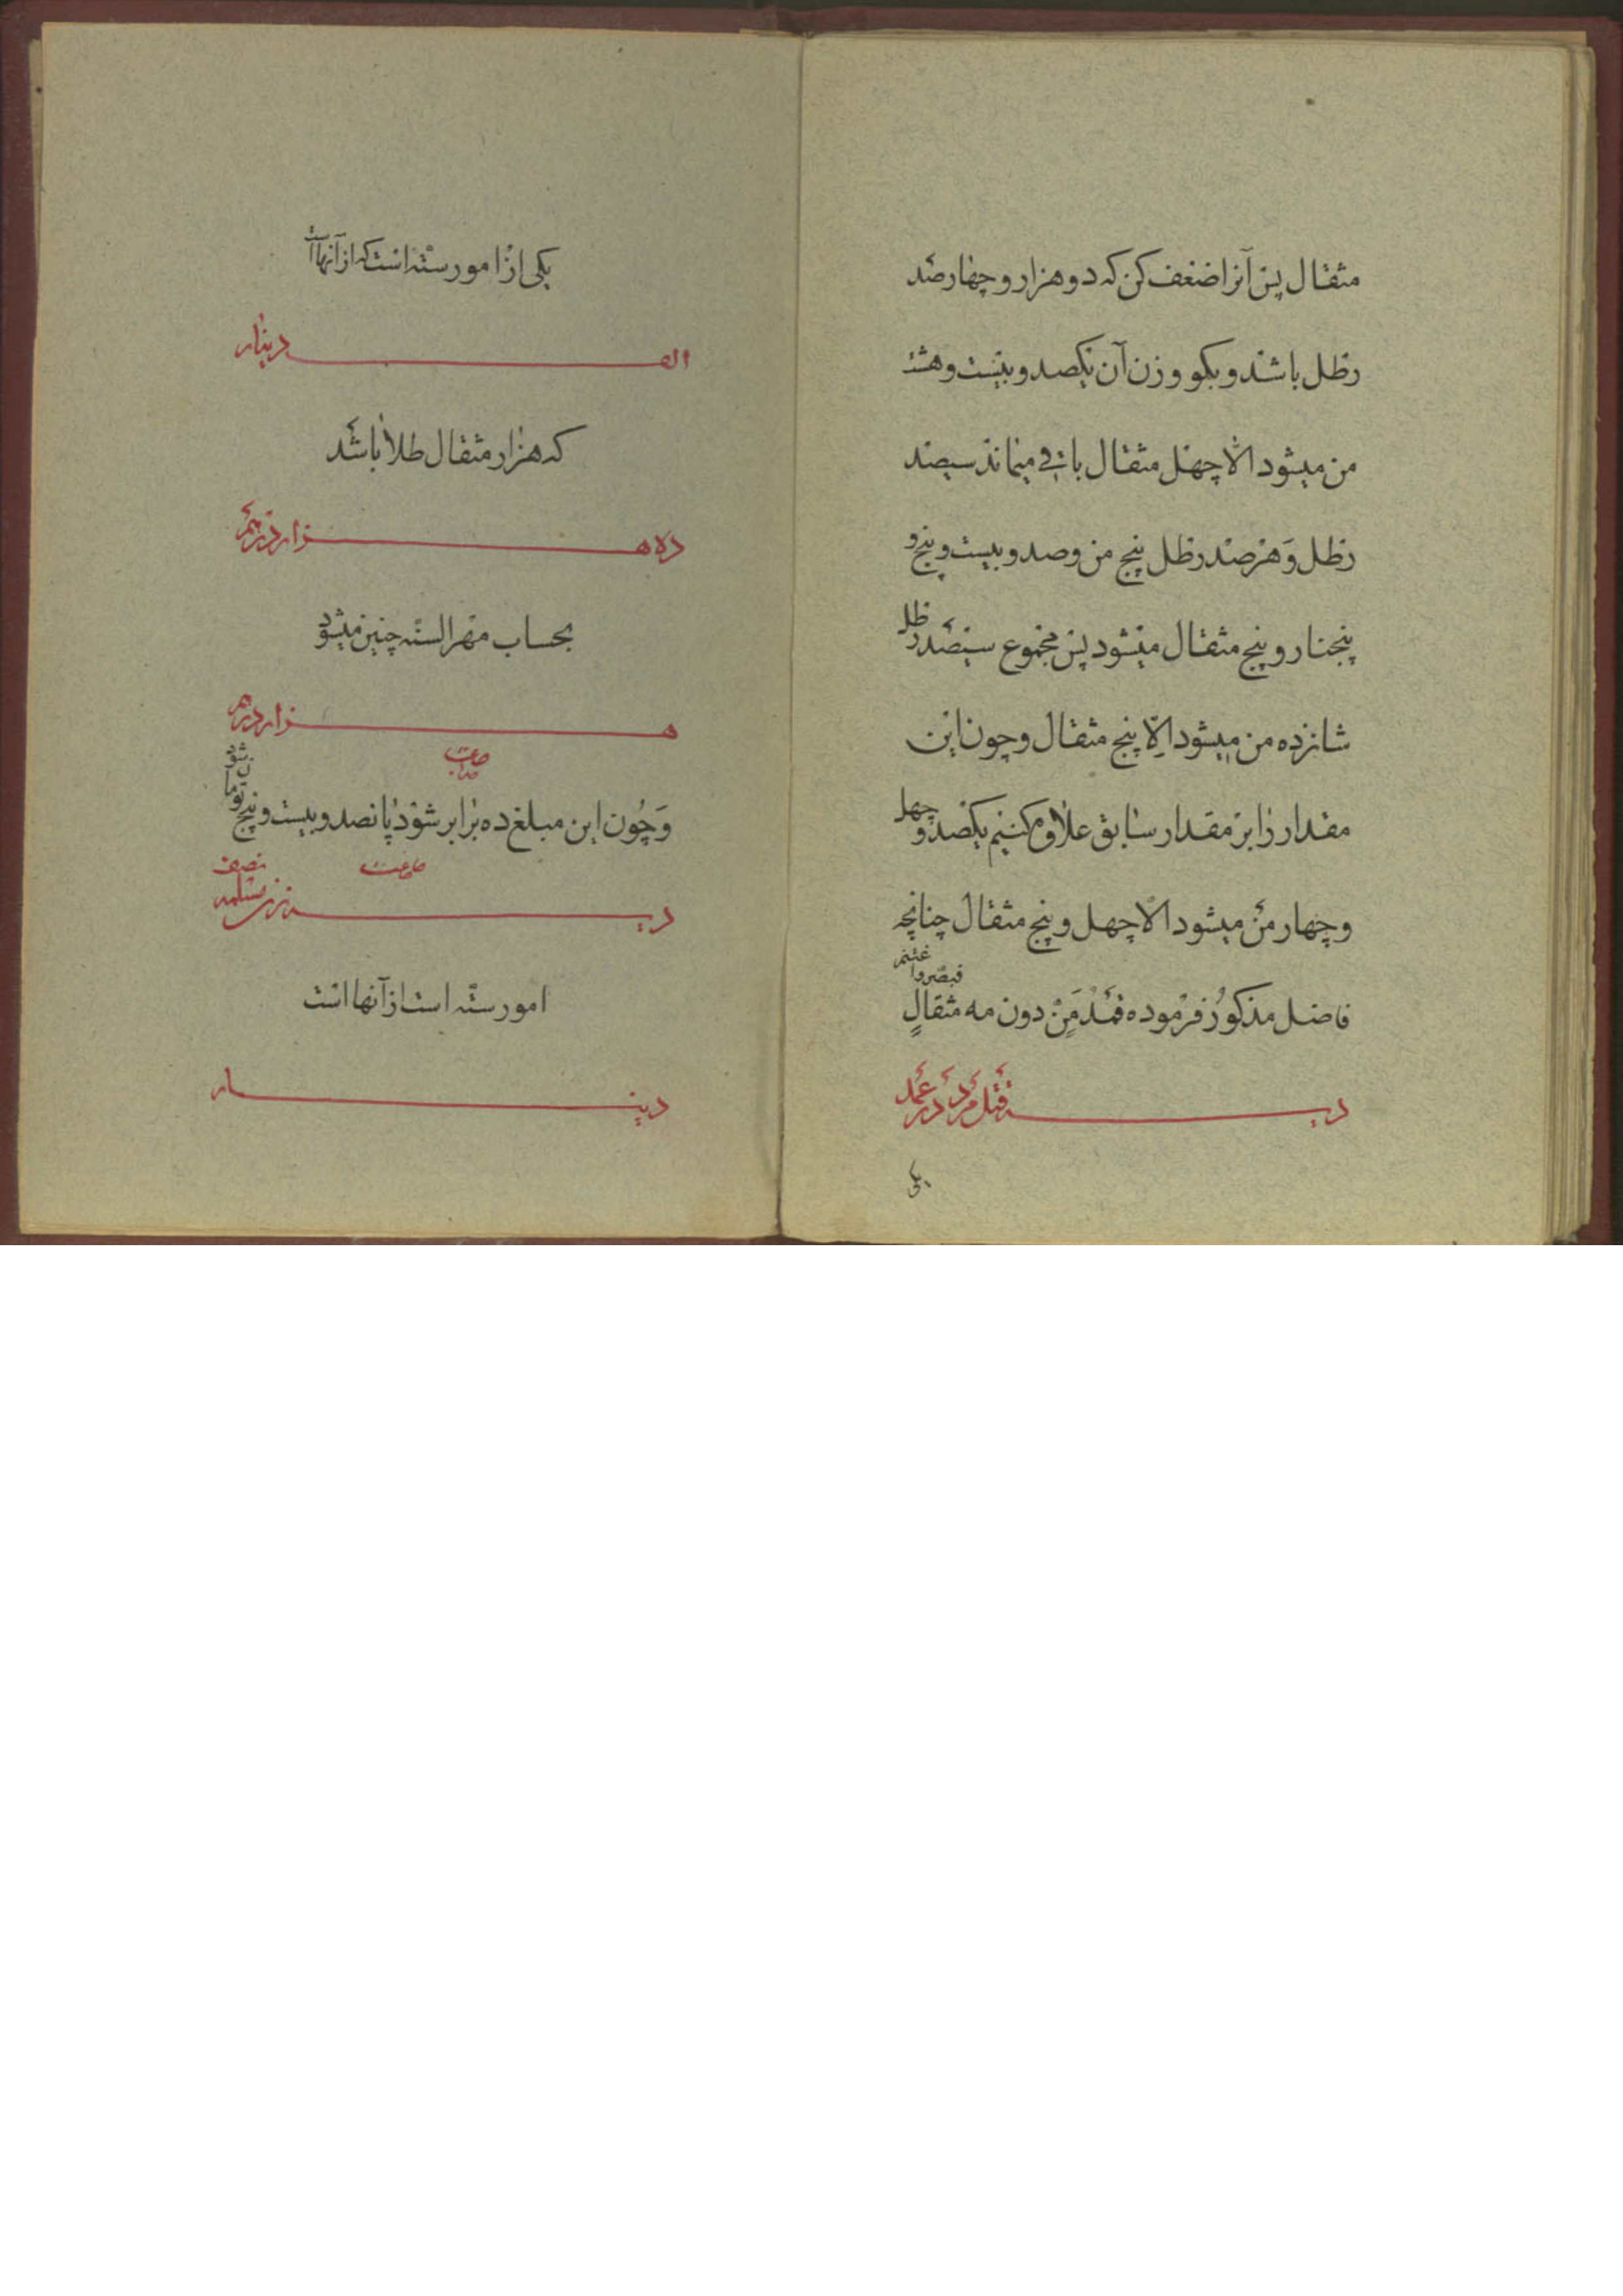 مثقال پس آنرا ضعف کن که دو هزار و چهار صد
رطل باشد و بگو وزن آن یکصد و بیست و هشت
من میشود الا چهل مثقال باقی میماند سیصد
رطل و هر صد رطل پنج من و صد و بیست و پنج و
پنجنار و پنج مثقال میشود پس مجموع سیصد رطل
شانزده من میشود الا پنج مثقال و چون این
مقدار را بر مقدار سابق علاوه کنیم یکصد و چهل
و چهار من میشود الا چهل و پنج مثقال چنانچه
فاضل مذکور فرموده قمد من دون مه مثقال
فبصروا
دیه قتل مرد در عمد
یکی
یکی از امور سته است که از آنها است
الف دینار
که هزار مثقال طلا باشد
ده هزار درهم
بحساب مهر السنه چنین میشود
هزار درهم
و چون این مبلغ ده برابر شود پانصد و بیست و پنج تومان شود
نصف
دیه زن مسلمه
امور سته است از آنها است
دینار